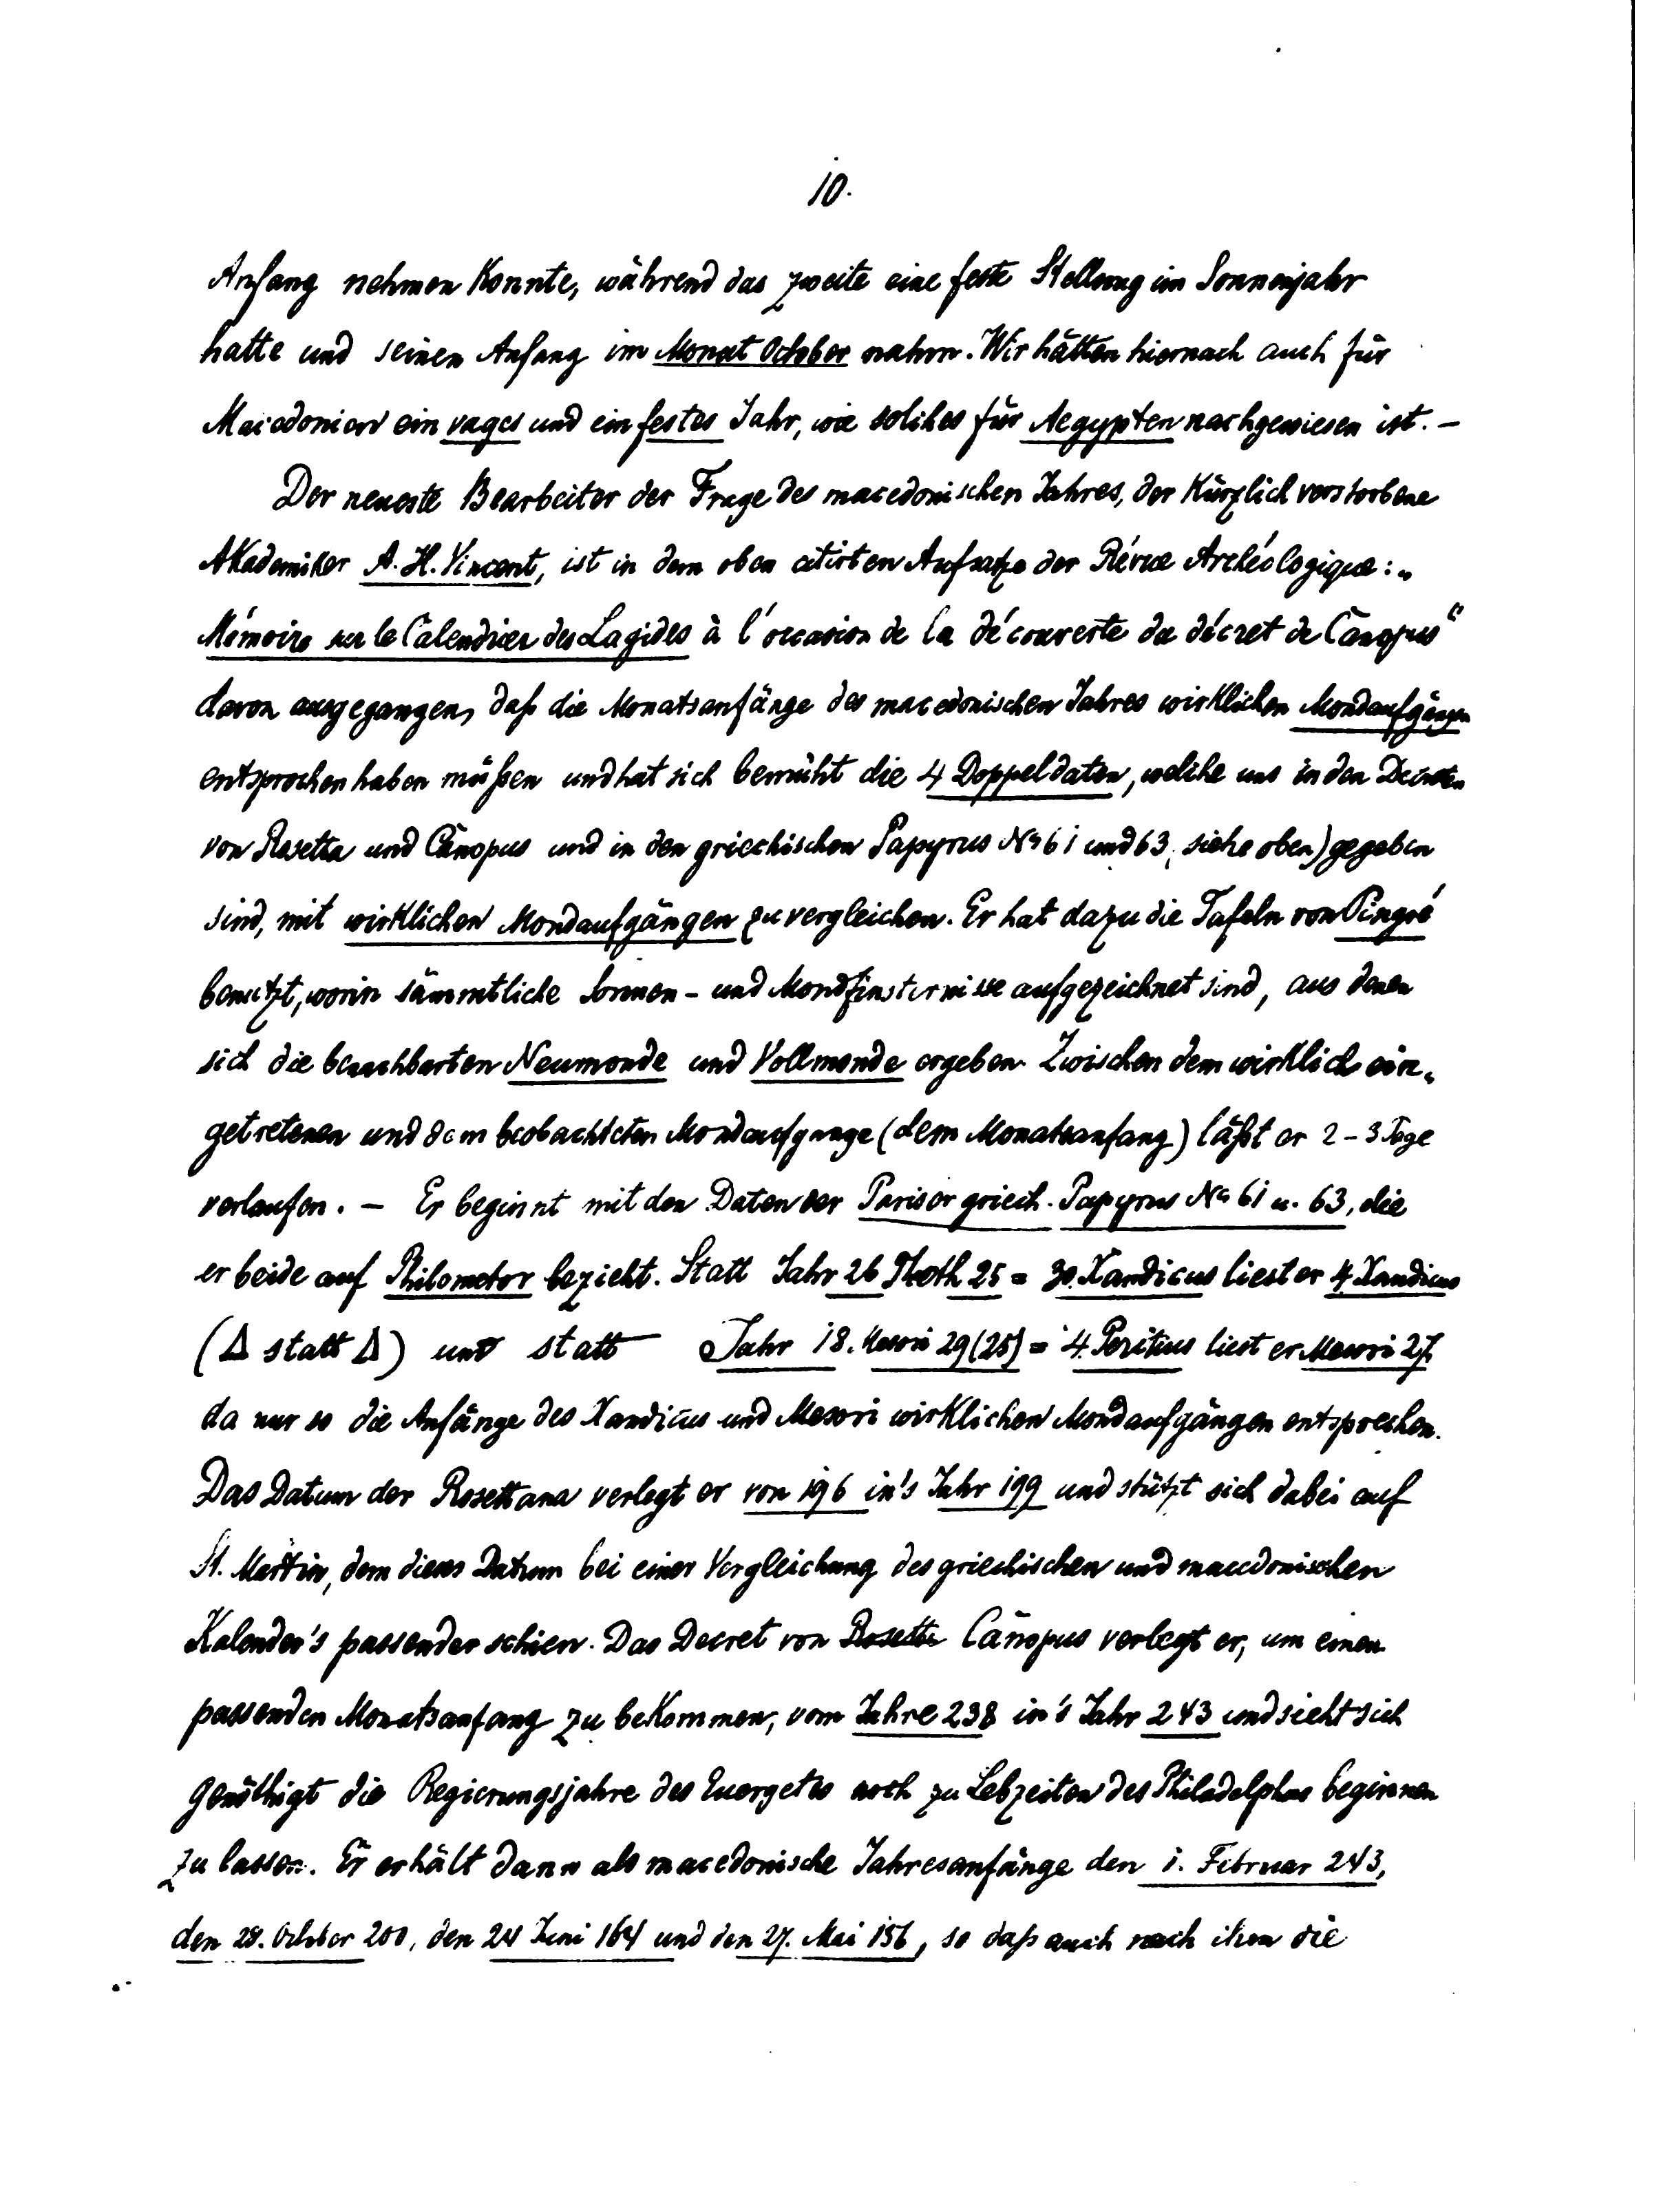 10.
Anfang nehmen konnte, während das zweite eine feste Stellung im Sonnenjahr
hatte und seinen Anfang im Monat October nahm. Wir hätten hiernach auch für
Macedonien ein vages und ein festes Jahr, wie solches für Aegypten nachgewiesen ist. —
Der neueste Bearbeiter der Frage des macedonischen Jahres, der kürzlich verstorbene
Akademiker A. H. Vincent, ist in dem oben citirten Aufsatze der Révue Archéologique: „
Mémoire sur le Calendrier des Lagides à l'occasion de la découverte du décret de Canopus“
davon ausgegangen, daß die Monatsanfänge des macedonischen Jahres wirklichen Mondaufgängen
entsprochen haben müßen und hat sich bemüht die 4 Doppeldaten, welche uns in den Decreten
von Rosetta und Canopus und in den griechischen Papyrus No 61 und 63, siehe oben) gegeben
sind, mit wirklichen Mondaufgängen zu vergleichen. Er hat dazu die Tafeln von Pingré
benutzt, worin sämmtliche Sonnen- und Mondfinsternisse aufgezeichnet sind, aus denen
sich die benachbarten Neumonde und Vollmonde ergeben. Zwischen dem wirklich ein„
getretenen und dem beobachteten Mondaufgange (dem Monatsanfang) läßt er 2-3 Tage
verlaufen. — Er beginnt mit den Daten der Pariser griech. Papyrus No 61 u. 63, die
er beide auf Philometor bezieht. Statt Jahr 26 Thoth 25 = 30. Xandicus liest er 4. Xandicus
(Δ statt Δ) und statt Jahr 18. Mesori 29 (25) = 4. Peritius liest er Mesori 27.
da nur so die Anfänge des Xandicus und Mesori wirklichen Mondaufgängen entsprechen.
Das Datum der Rosettana verlegt er von 196 in's Jahr 199 und stützt sich dabei auf
St. Martin, dem dieses Datum bei einer Vergleichung des griechischen und macedonischen
Kalender's passender schien. Das Decret von Rosette Canopus verlegt er, um einen
passenden Monatsanfang zu bekommen, vom Jahre 238 in's Jahr 243 und sieht sich
genöthigt die Regierungsjahre des Euergetes noch zu Lebzeiten des Philadelphus beginnen
zu lassen. Er erhält dann als macedonische Jahresanfänge den 1. Februar 243,
den 28. October 200, den 24 Juni 164 und den 27. Mai 156, so daß auch nach ihm die